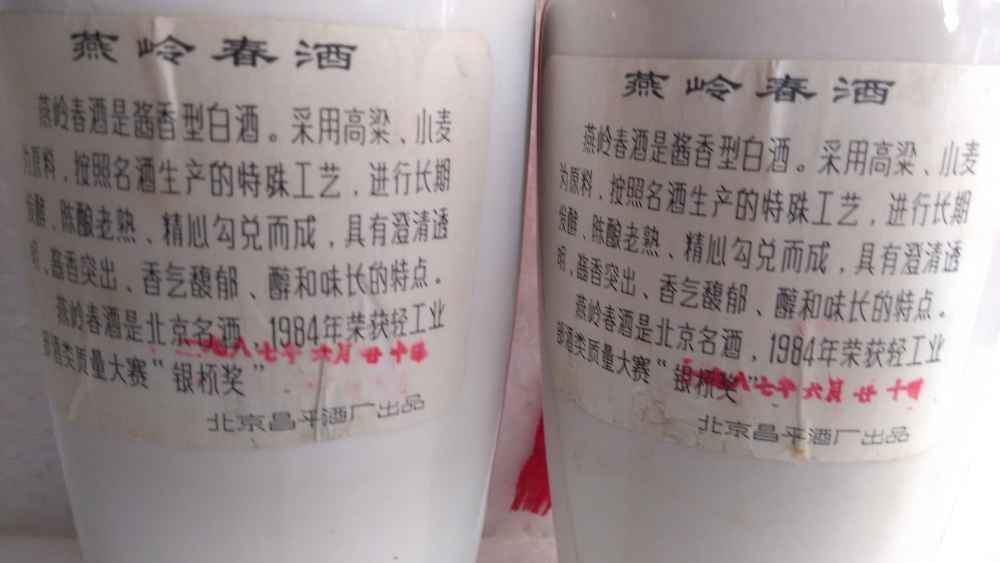 燕岭春酒
燕岭春酒是酱香型白酒。采用高梁、小麦
为原料，按照名酒生产的特殊工艺，进行长期
发酵、陈酿老熟、精心勾兑而成，具有澄清透
明，酱香突出、香气馥郁、醇和味长的特点。
燕岭春酒是北京名酒，1984年荣获轻工业
部酒类质量大赛“银桥奖”
一九八七年六月廿十
北京昌平酒厂出品
燕岭春酒
燕岭春酒是酱香型白酒。采用高梁、小麦
为原料，按照名酒生产的特殊工艺，进行长期
发酵、陈酿老熟、精心勾兑而成，具有澄清透
明，酱香突出、香气馥郁、醇和味长的特点。
燕岭春酒是北京名酒，1984年荣获轻工业
部酒类质量大赛“银桥奖”
一九八七年六月廿十
北京昌平酒厂出品